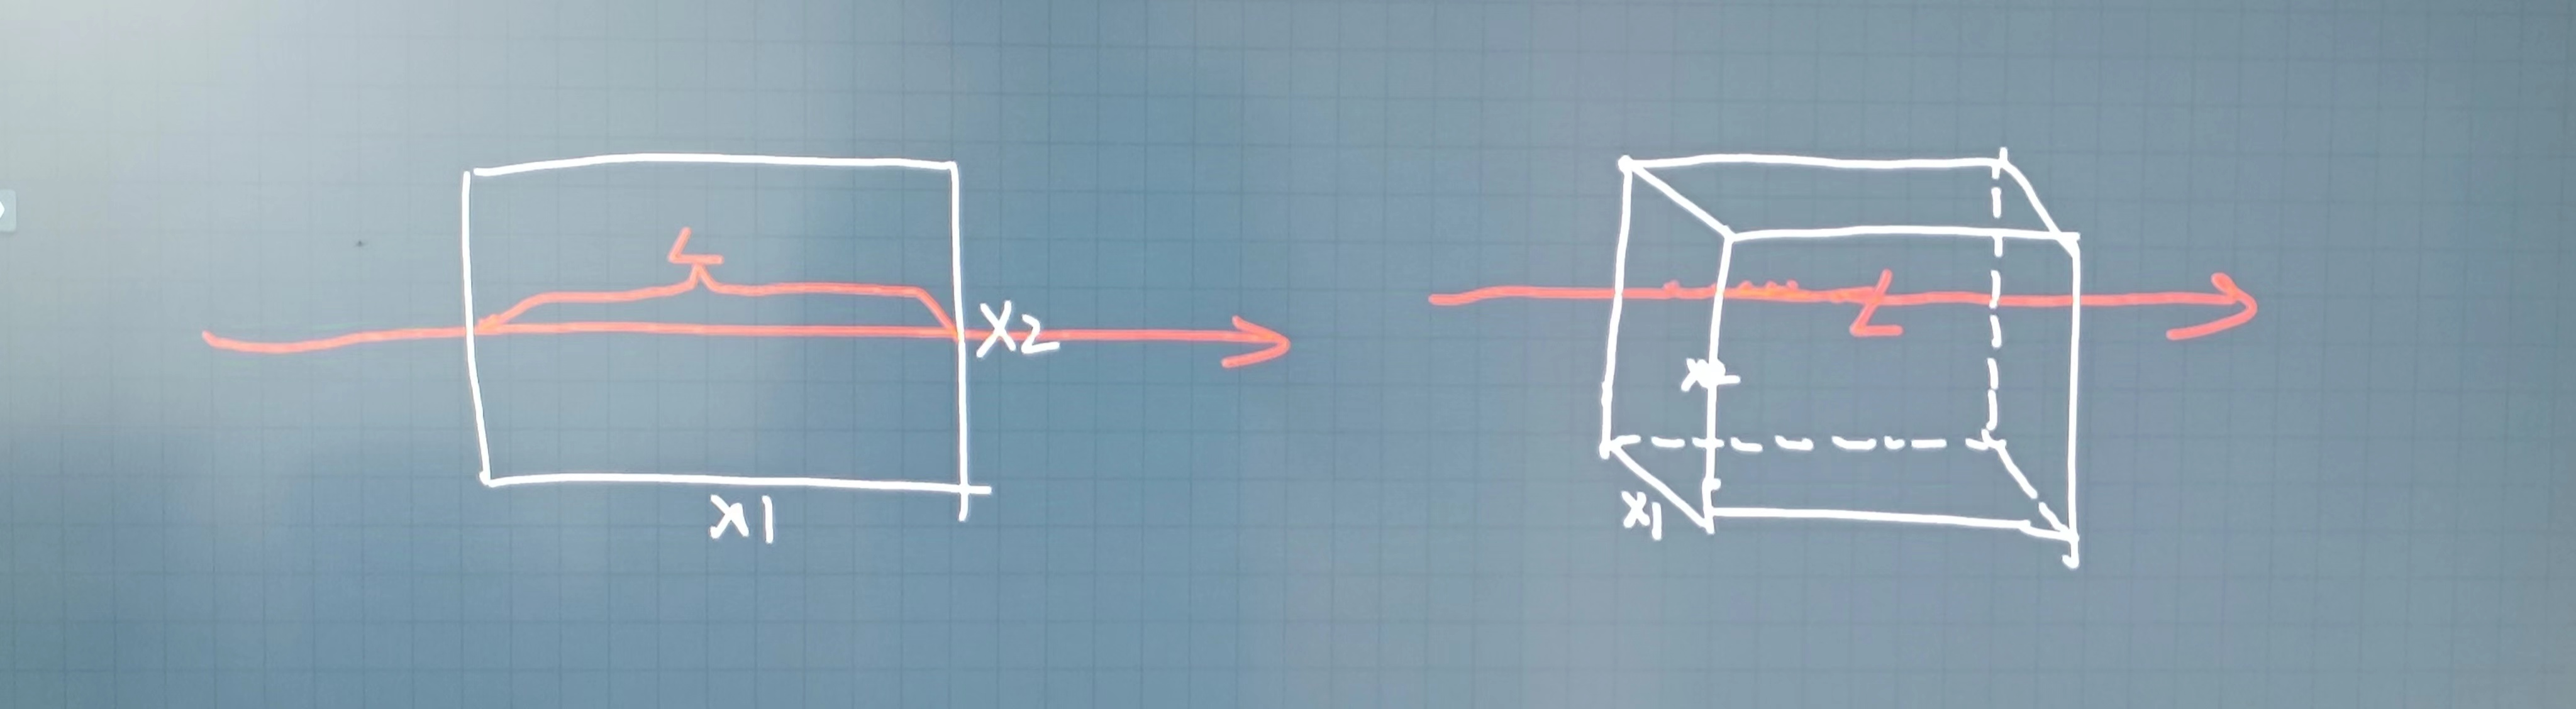 L
X2
x1
L
x1